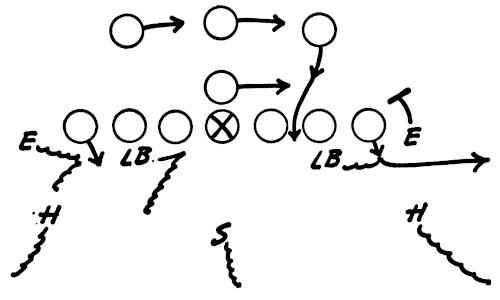 E LB LB E
H S H